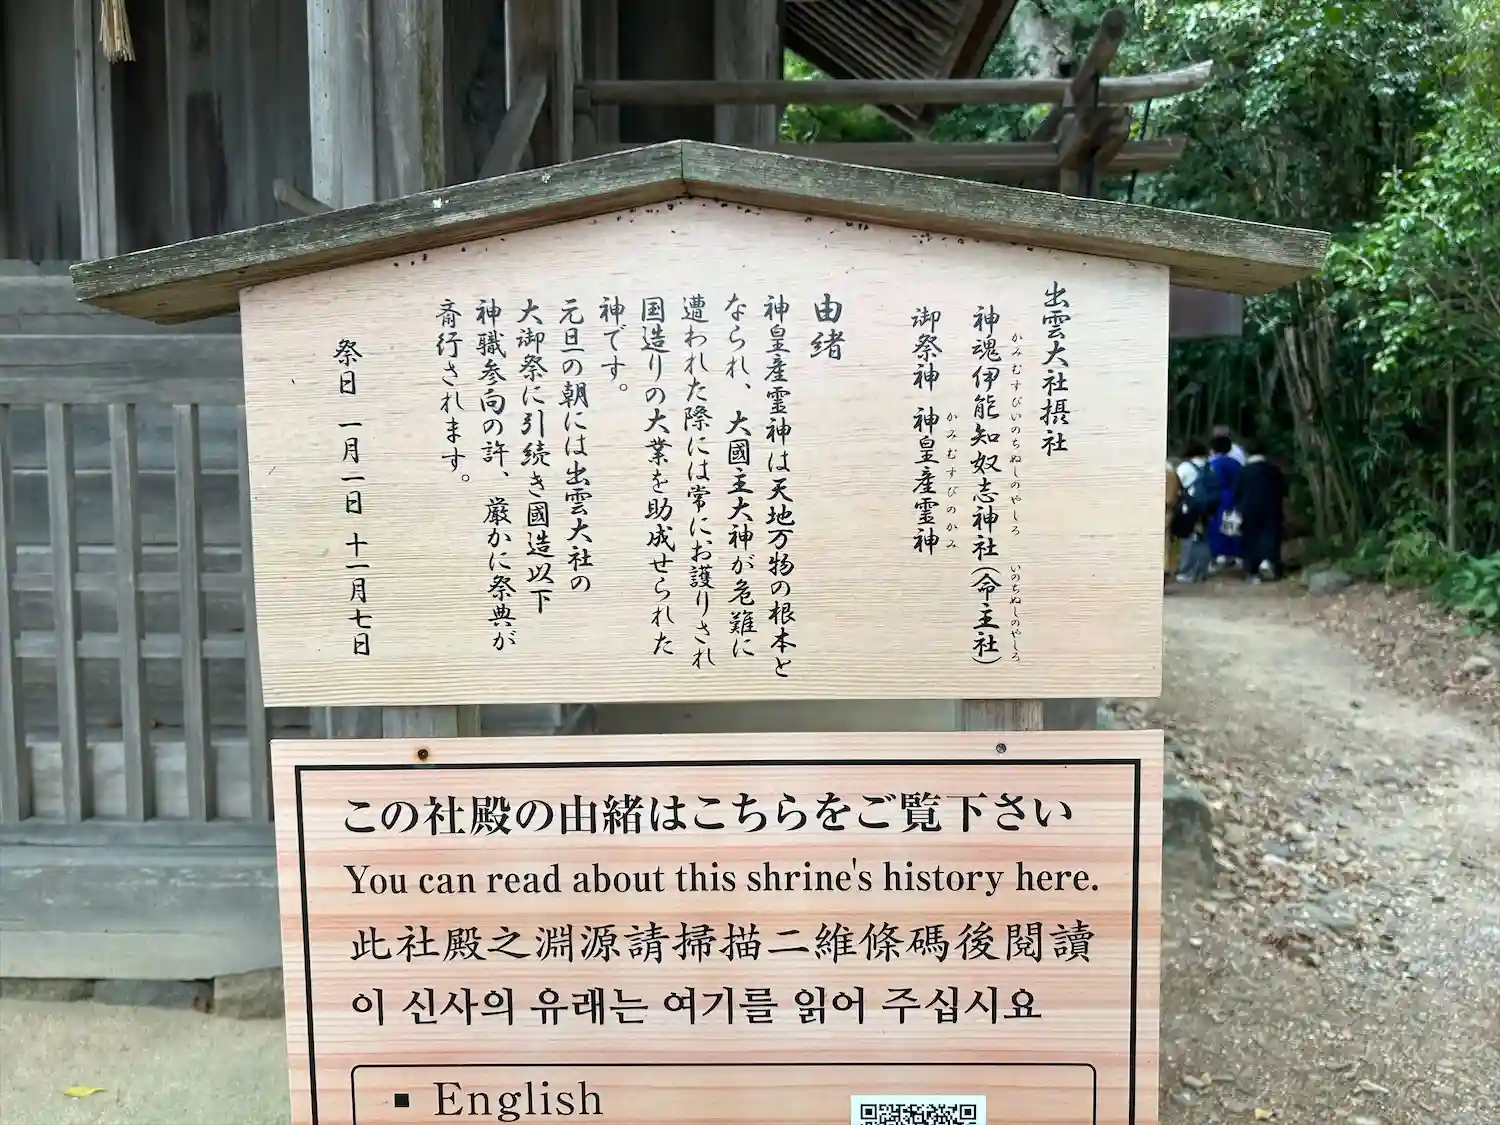 出雲大社摂社
神魂伊能知奴志神社(命主社)
かみむすびいのちぬしのやしろ
いのちぬしのやしろ
御祭神 神皇産霊神
かみむすびのかみ
由緒
神皇産霊神は天地万物の根本と
なられ、大國主大神が危難に
遭われた際には常にお護りされ
国造りの大業を助成せられた
神です。
元旦の朝には出雲大社の
大御祭に引続き國造以下
神職参向の許、厳かに祭典が
斎行されます。
祭日 一月一日 十一月七日
この社殿の由緒はこちらをご覧下さい
You can read about this shrine's history here.
此社殿之淵源請掃描二維條碼後閱讀
이 신사의 유래는 여기를 읽어 주십시요
■ English